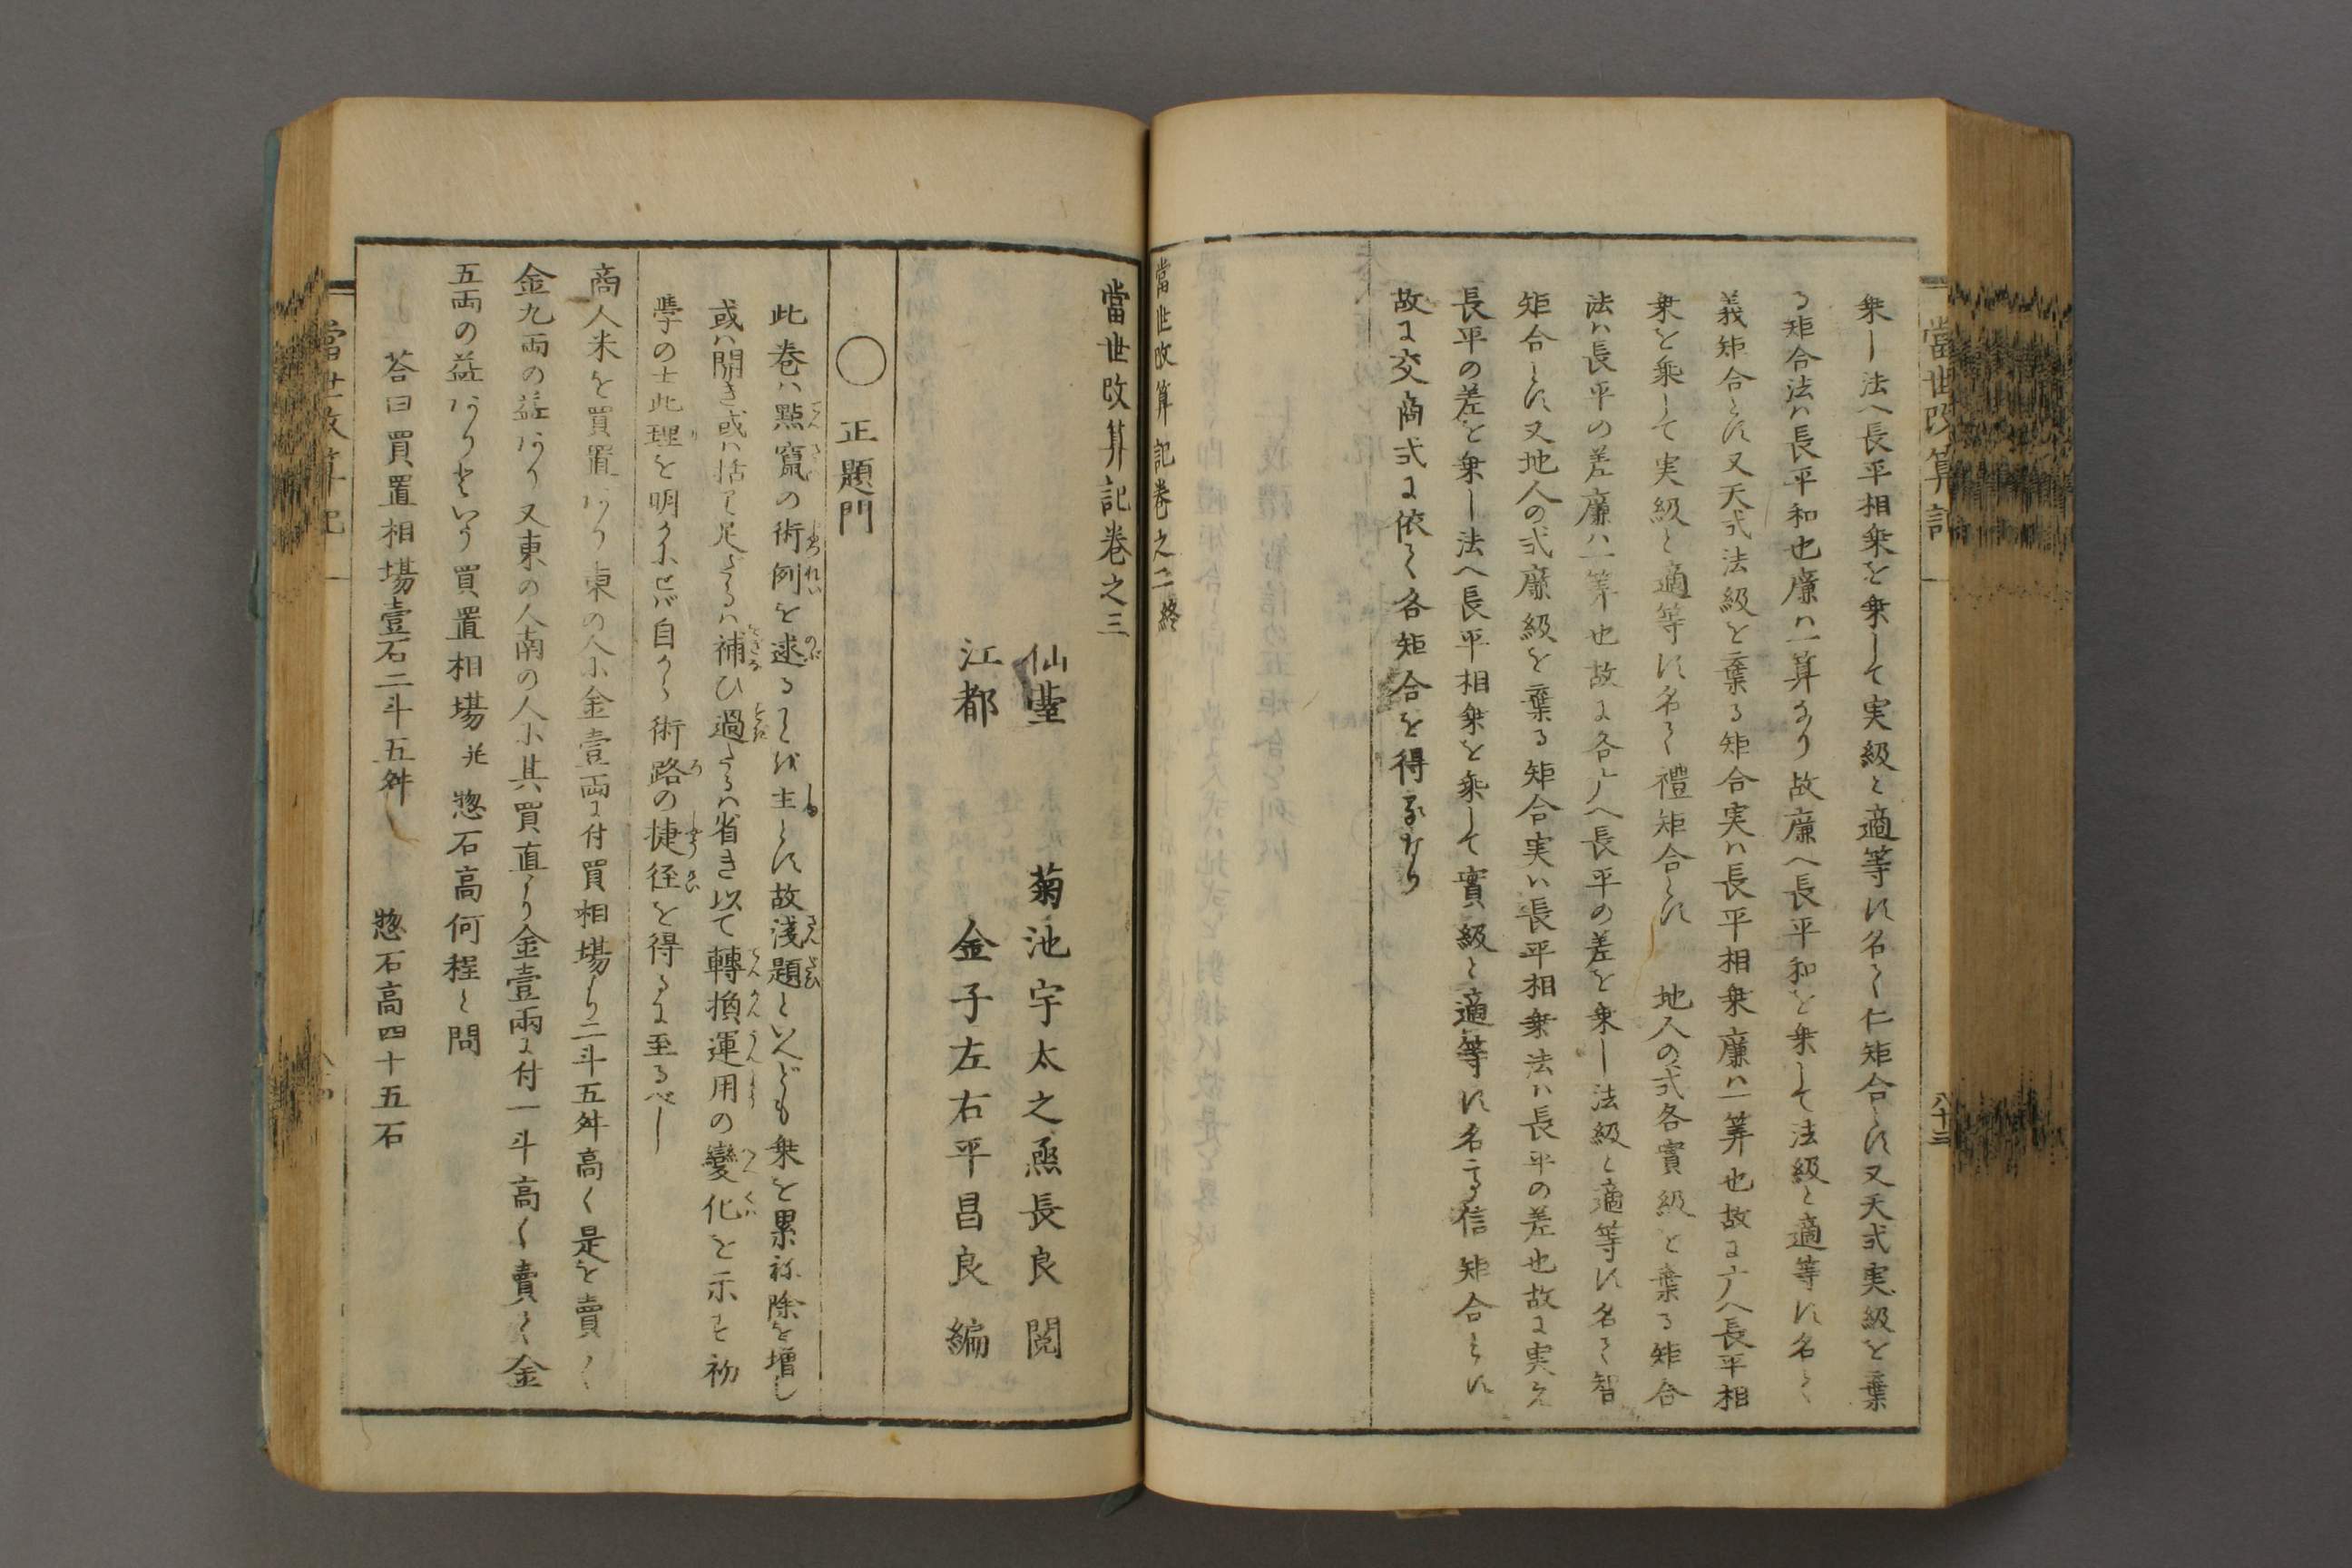 當世改算記
八十三
乗し法へ長平相乗を乗して実級と適等に名く仁矩合とす又天式実級を棄
る矩合法ハ長平和也廉ハ一算なり故廉へ長平和を乗して法級と適等に名く
義矩合とす又天式法級を棄る矩合実ハ長平相乗廉ハ一算也故に广へ長平相
乗を乗して実級と適等に名く禮矩合とす 地人の式各實級を棄る矩合
法ハ長平の差廉ハ一算也故に各广へ長平の差を乗し法級と適等に名く智
矩合とす又地人の式廉級を棄る矩合実ハ長平相乗法ハ長平の差也故に実え
長平の差を乗し法へ長平相乗を乗して實級と適等に名る信矩合とす
故に交商式に依て各矩合を得るなり
當世改算記巻之二終
當世改算記巻之三
仙臺 菊池宇太之烝長良 閲
江都 金子左右平昌良 編
○ 正題門
此巻ハ點竄の術例を述ることを主とす故浅題といへども乗を累ね除を増し
或ハ開き或ハ括り足さるハ補ひ過たるハ省き以て轉換運用の變化を示す初
學の士此理を明かにせバ自から術路の捷徑を得るに至るべし
商人米を買置あり東の人に金壹両に付買相場より二斗五舛高く是を賣て
金九両の益あり又東の人南の人に其買直より金壹兩に付一斗高く賣て金
五両の益ありといふ買置相場并惣石高何程と問
荅曰 買置相場壹石二斗五舛 惣石高四十五石
當世改算記